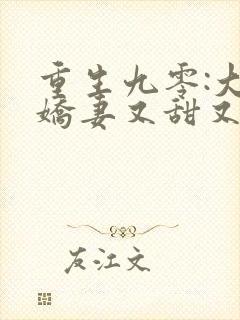 重生九零:大
娇妻又甜又
友江文